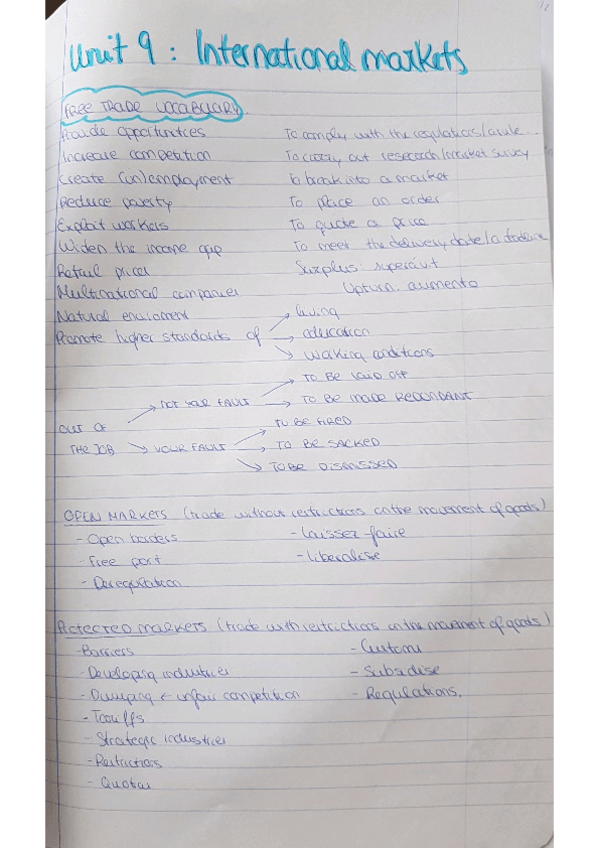 Unit 9: International markets
FREE TRADE VOCABULARY
Provide opportunities
Increase competition
Create (un)employment
Reduce poverty
Exploit workers
Widen the income gap
Retail prices
Multinational companies
Natural enviroment
Promote higher standards of
living
education
working conditions
To comply with the regulations/a rule
To carry out research/market survey
To break into a market
To place an order
To quote a price
To meet the delivery date/a deadline
Surplus: superávit
Upturn: aumento
OUT OF THE JOB
NOT YOUR FAULT
TO BE LAID OFF
TO BE MADE REDUNDANT
YOUR FAULT
TO BE FIRED
TO BE SACKED
TO BE DISMISSED
OPEN MARKETS (trade without restrictions on the movement of goods)
- Open borders
- Free port
- Deregulation
- Laissez-faire
- Liberalise
PROTECTED MARKETS (trade with restrictions on the movement of goods)
- Barriers
- Developing industries
- Dumping ← unfair competition
- Tariffs
- Strategic industries
- Restrictions
- Quotas
- Customs
- Subsidise
- Regulations.